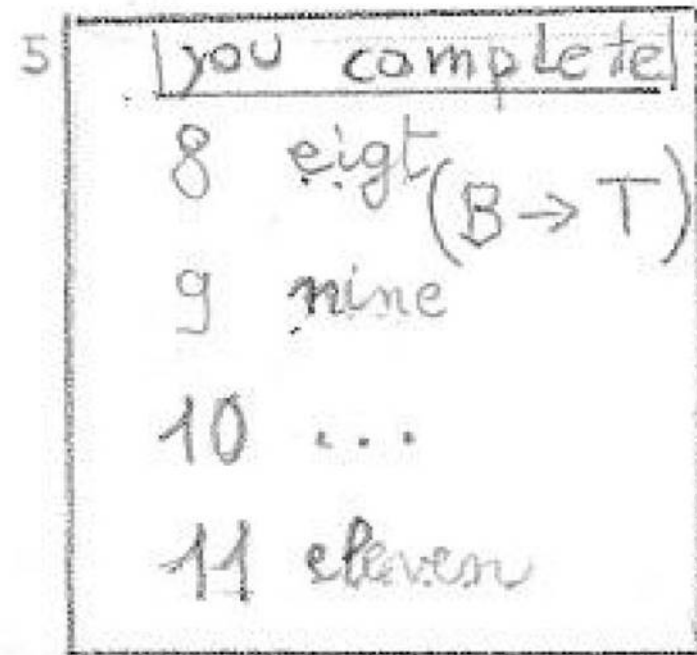 5
you complete
8 eigt (B → T)
9 nine
10 ...
11 eleven